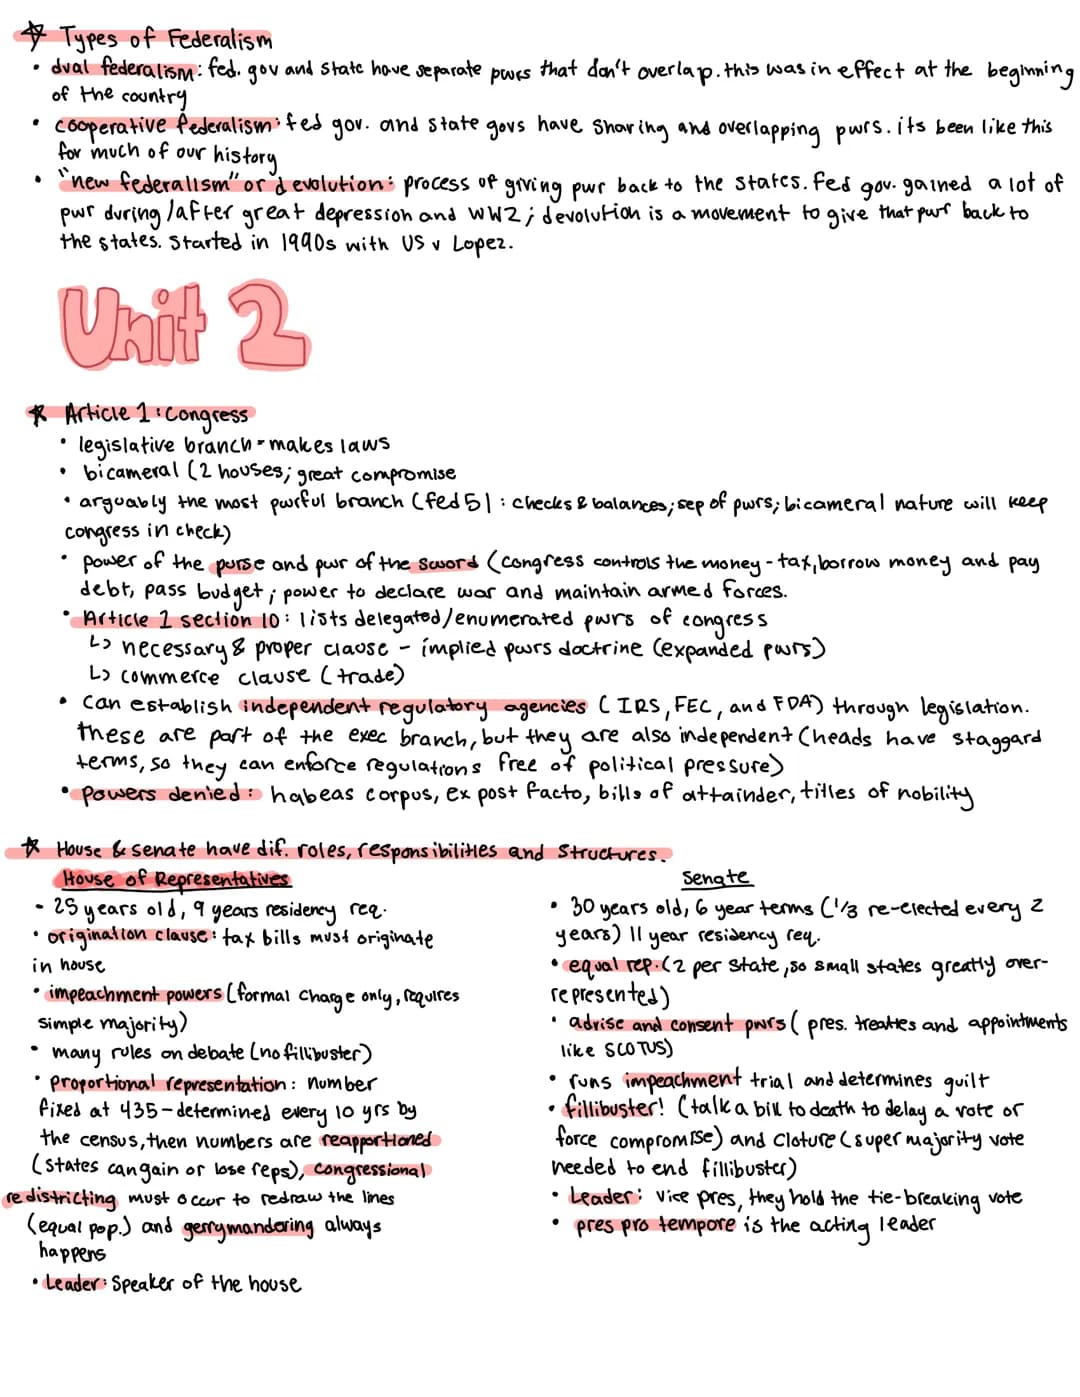 ☆ Types of Federalism
• dual federalism: fed. gov and state have separate pwrs that don't overlap. this was in effect at the beginning
of the country
• cooperative federalism: fed gov. and state govs have sharing and overlapping pwrs. its been like this
for much of our history
• "new federalism" or devolution: process of giving pwr back to the states. Fed gov. gained a lot of
pwr during/after great depression and WW2; devolution is a movement to give that pwr back to
the states. Started in 1990s with US v Lopez.
Unit 2
☆ Article 1: Congress
• legislative branch - makes laws
• bicameral (2 houses; great compromise
• arguably the most pwrful branch (fed 51: checks & balances; sep of pwrs; bicameral nature will keep
congress in check)
• power of the purse and pwr of the sword (congress controls the money - tax, borrow money and pay
debt, pass budget; power to declare war and maintain armed forces.
• Article 1 section 10: lists delegated/enumerated pwrs of congress
↳ necessary & proper clause - implied pwrs doctrine (expanded pwrs)
↳ commerce clause (trade)
• Can establish independent regulatory agencies (IRS, FEC, and FDA) through legislation.
these are part of the exec branch, but they are also independent (heads have staggard
terms, so they can enforce regulations free of political pressure)
• Powers denied: habeas corpus, ex post facto, bills of attainder, titles of nobility
☆ House & senate have dif. roles, responsibilities and structures.
House of Representatives
- 25 years old, 9 years residency req.
• origination clause: tax bills must originate
in house
• impeachment powers (formal charge only, requires
simple majority)
• many rules on debate (no fillibuster)
• proportional representation: number
fixed at 435 - determined every 10 yrs by
the census, then numbers are reapportioned
(states can gain or lose reps), congressional
redistricting must occur to redraw the lines
(equal pop.) and gerrymandering always
happens
• Leader: Speaker of the house
Senate
• 30 years old, 6 year terms (1/3 re-elected every 2
years) 11 year residency req.
• equal rep. (2 per state, so small states greatly over-
represented)
• advise and consent pwrs (pres. treaties and appointments
like SCOTUS)
• runs impeachment trial and determines guilt
• fillibuster! (talk a bill to death to delay a vote or
force compromise) and Cloture (super majority vote
needed to end fillibuster)
• Leader: vice pres, they hold the tie-breaking vote
• pres pro tempore is the acting leader